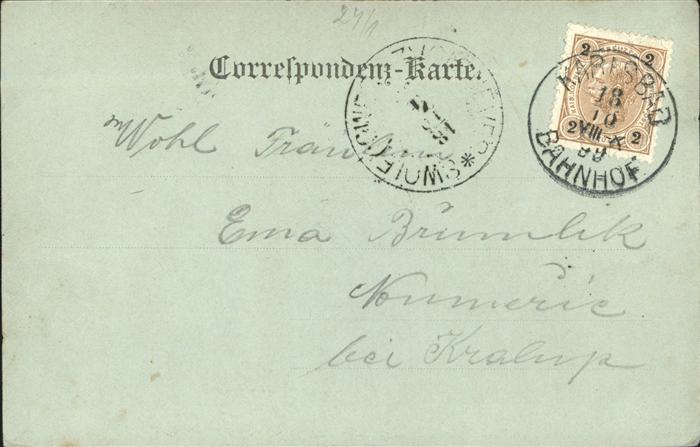 24/1
Correspondenz-Karte.
2 2
2 2
KARLSBAD
18
10
VIII
99
BAHNHOF
Wohl Fräulein
Ema Brümlik
Noumeric
bei Kralup